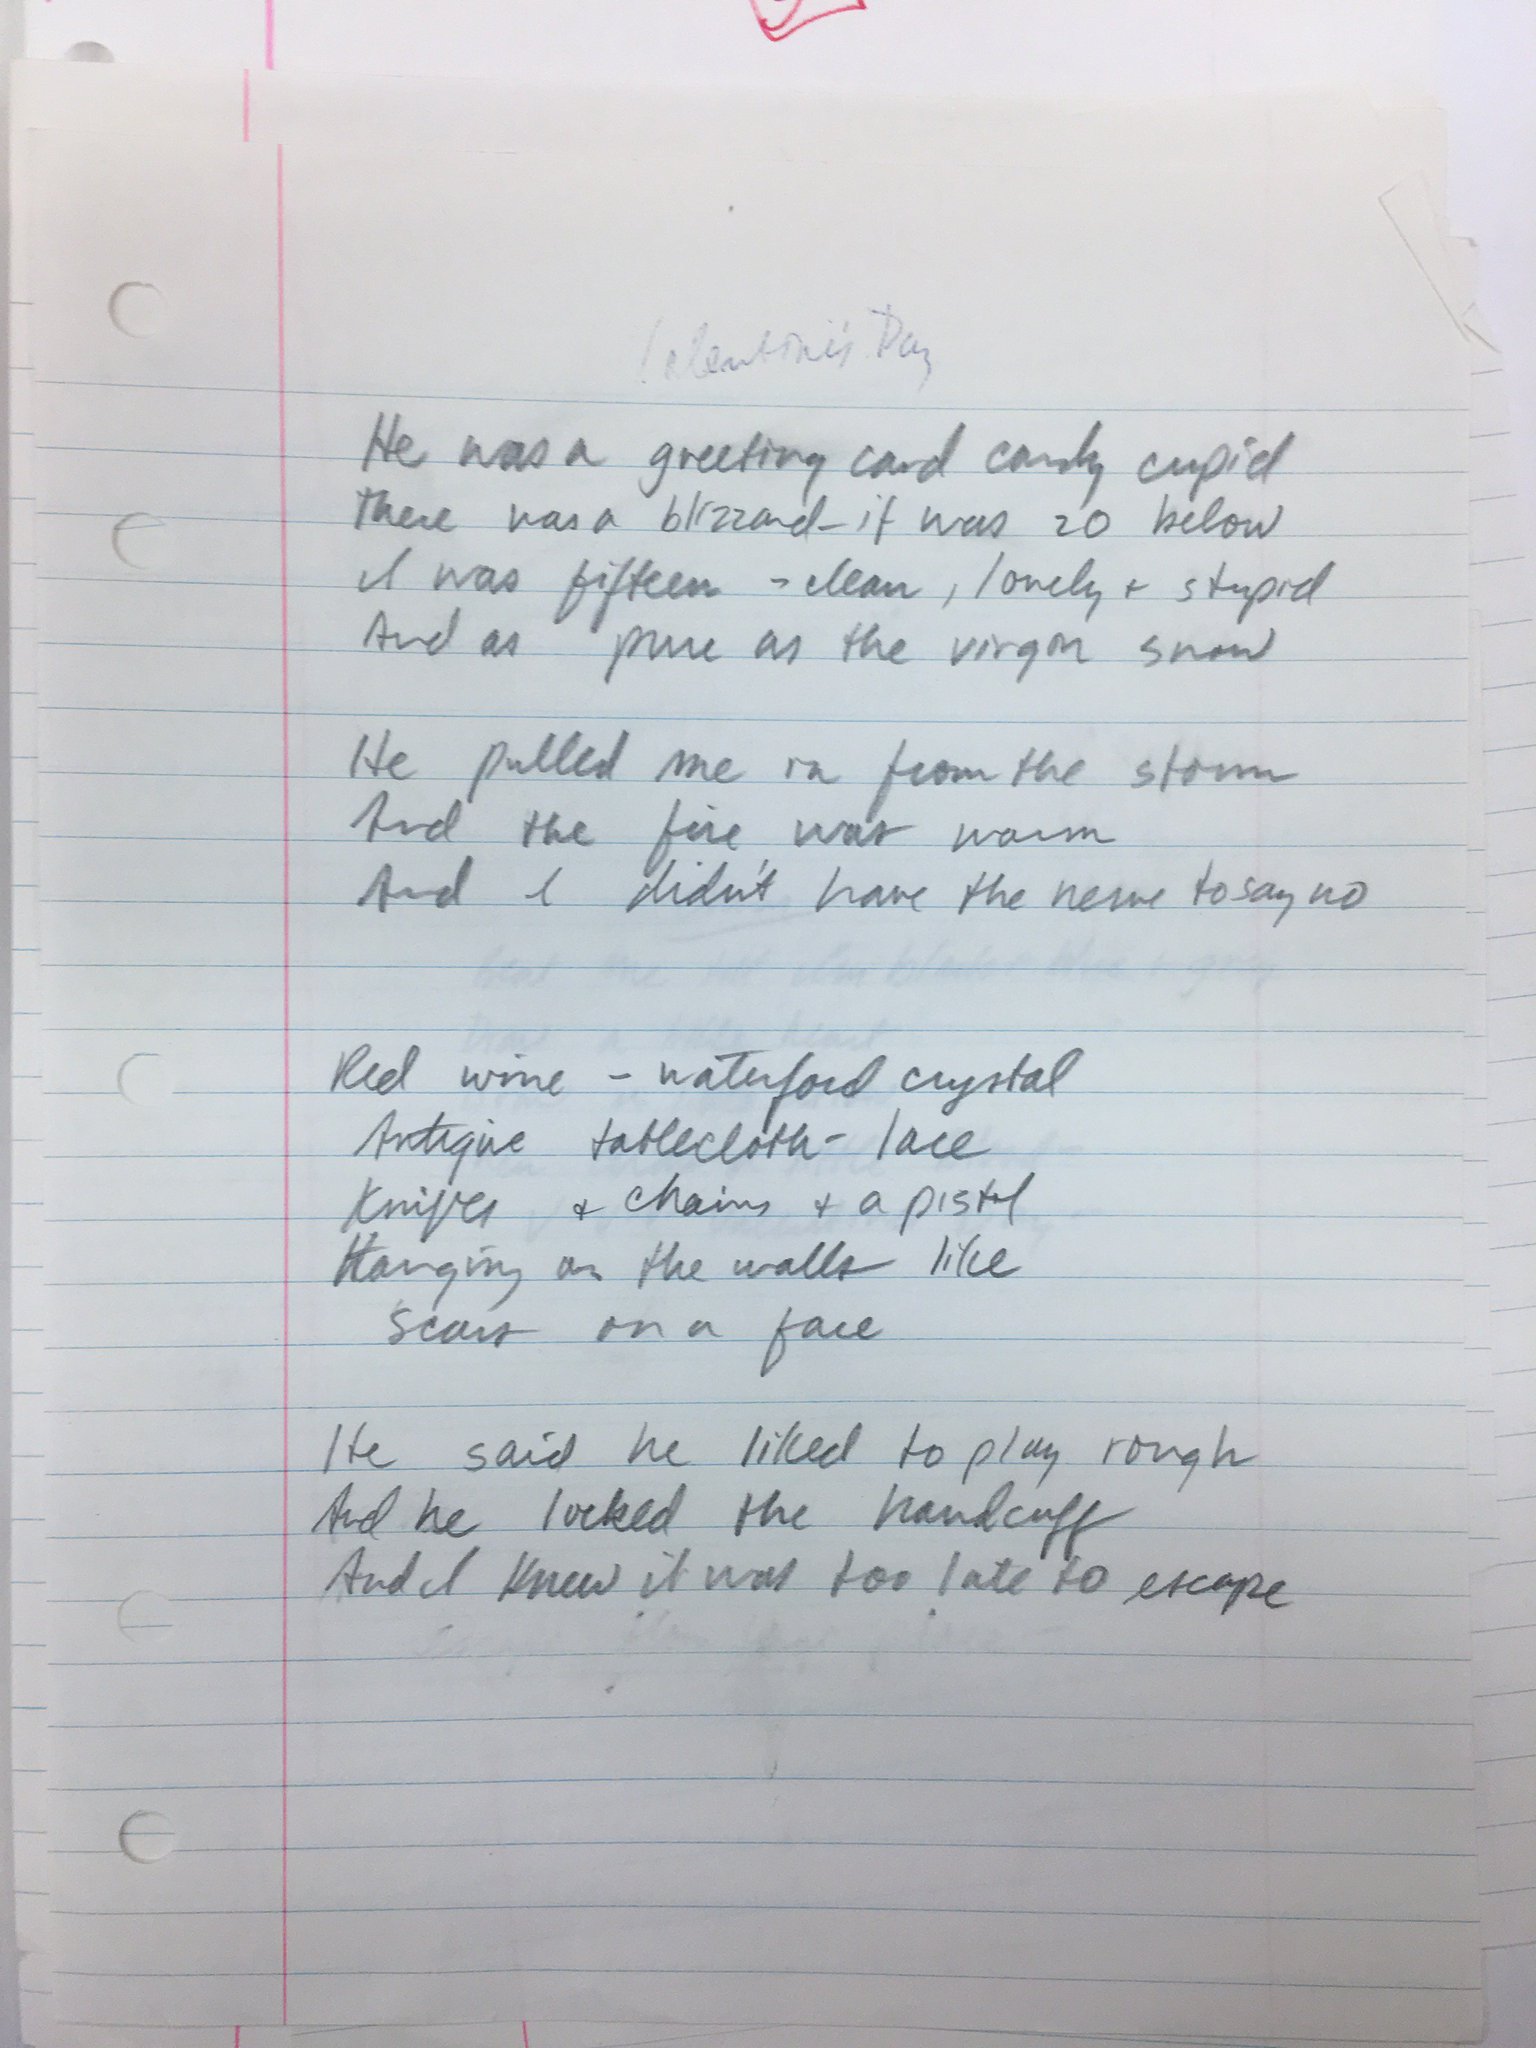 Valentine's Day
He was a greeting card candy cupid
There was a blizzard - it was 20 below
I was fifteen - clean, lonely + stupid
And as pure as the virgin snow
He pulled me in from the storm
And the fire was warm
And I didn't have the nerve to say no
Red wine - waterford crystal
Antique tablecloth - lace
Knives + chains + a pistol
Hanging on the walls like
scars on a face
He said he liked to play rough
And he locked the handcuff
And I knew it was too late to escape